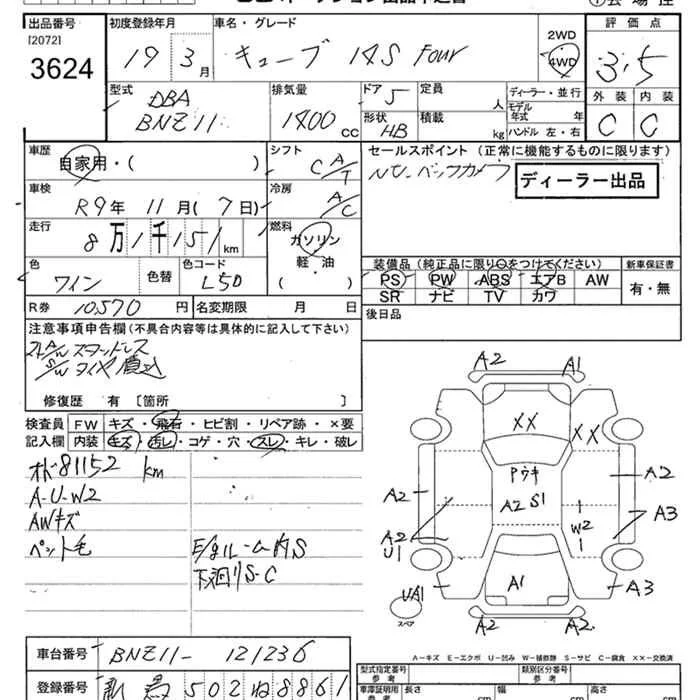 出品番号 初度登録年月 車名・グレード 2WD 評価点
[2072] 19 3月 キューブ 14S Four 4WD 3.5
3624
型式 排気量 ドア 定員 ディーラー・並行 外装 内装
DBA 5 人 モデル年式 年
BNZ11 1400cc 形状 HB 積載 kg ハンドル 左・右 C C
車歴 シフト セールスポイント(正常に機能するものに限ります)
自家用・( ) C A/T ディーラー出品
車検 冷房
R9年 11月(7日) A/C
走行 燃料
8万1千151km ガソリン
色 色替 色コード 軽・油 装備品(純正品に限り○をつけてください) 新車保証書
ワイン L50 ( ) PS PW ABS エアB AW 有・無
SR ナビ TV カワ
R券 10570円 名変期限 月 日 後日品
注意事項申告欄(不具合内容等は具体的に記入して下さい)
スタッドレス
タイヤ積込
修復歴 有 [箇所 ]
検査員 FW キズ・飛石・ヒビ割・リペア跡・×要
記入欄 内装 キズ・汚レ・コゲ・穴・スレ・キレ・破レ
81152 km
A-U-W2
AWキズ
ペット毛 E/gルーム内S
下廻りS-C
A2 A1
XX XX
Pウキ
A2 S1
A2 A2
W2 A3
A2
U1
A1 UA1 A3
スペア
A2 A2
車台番号 BNZ11-121236
A-キズ E-エクボ U-凹み W-補修跡 S-サビ C-腐食 XX-交換済
型式指定番号 参考 類別区分番号 参考
登録番号 502 ね 8861
車庫証明用 参考 長さ cm 幅 cm 高さ cm